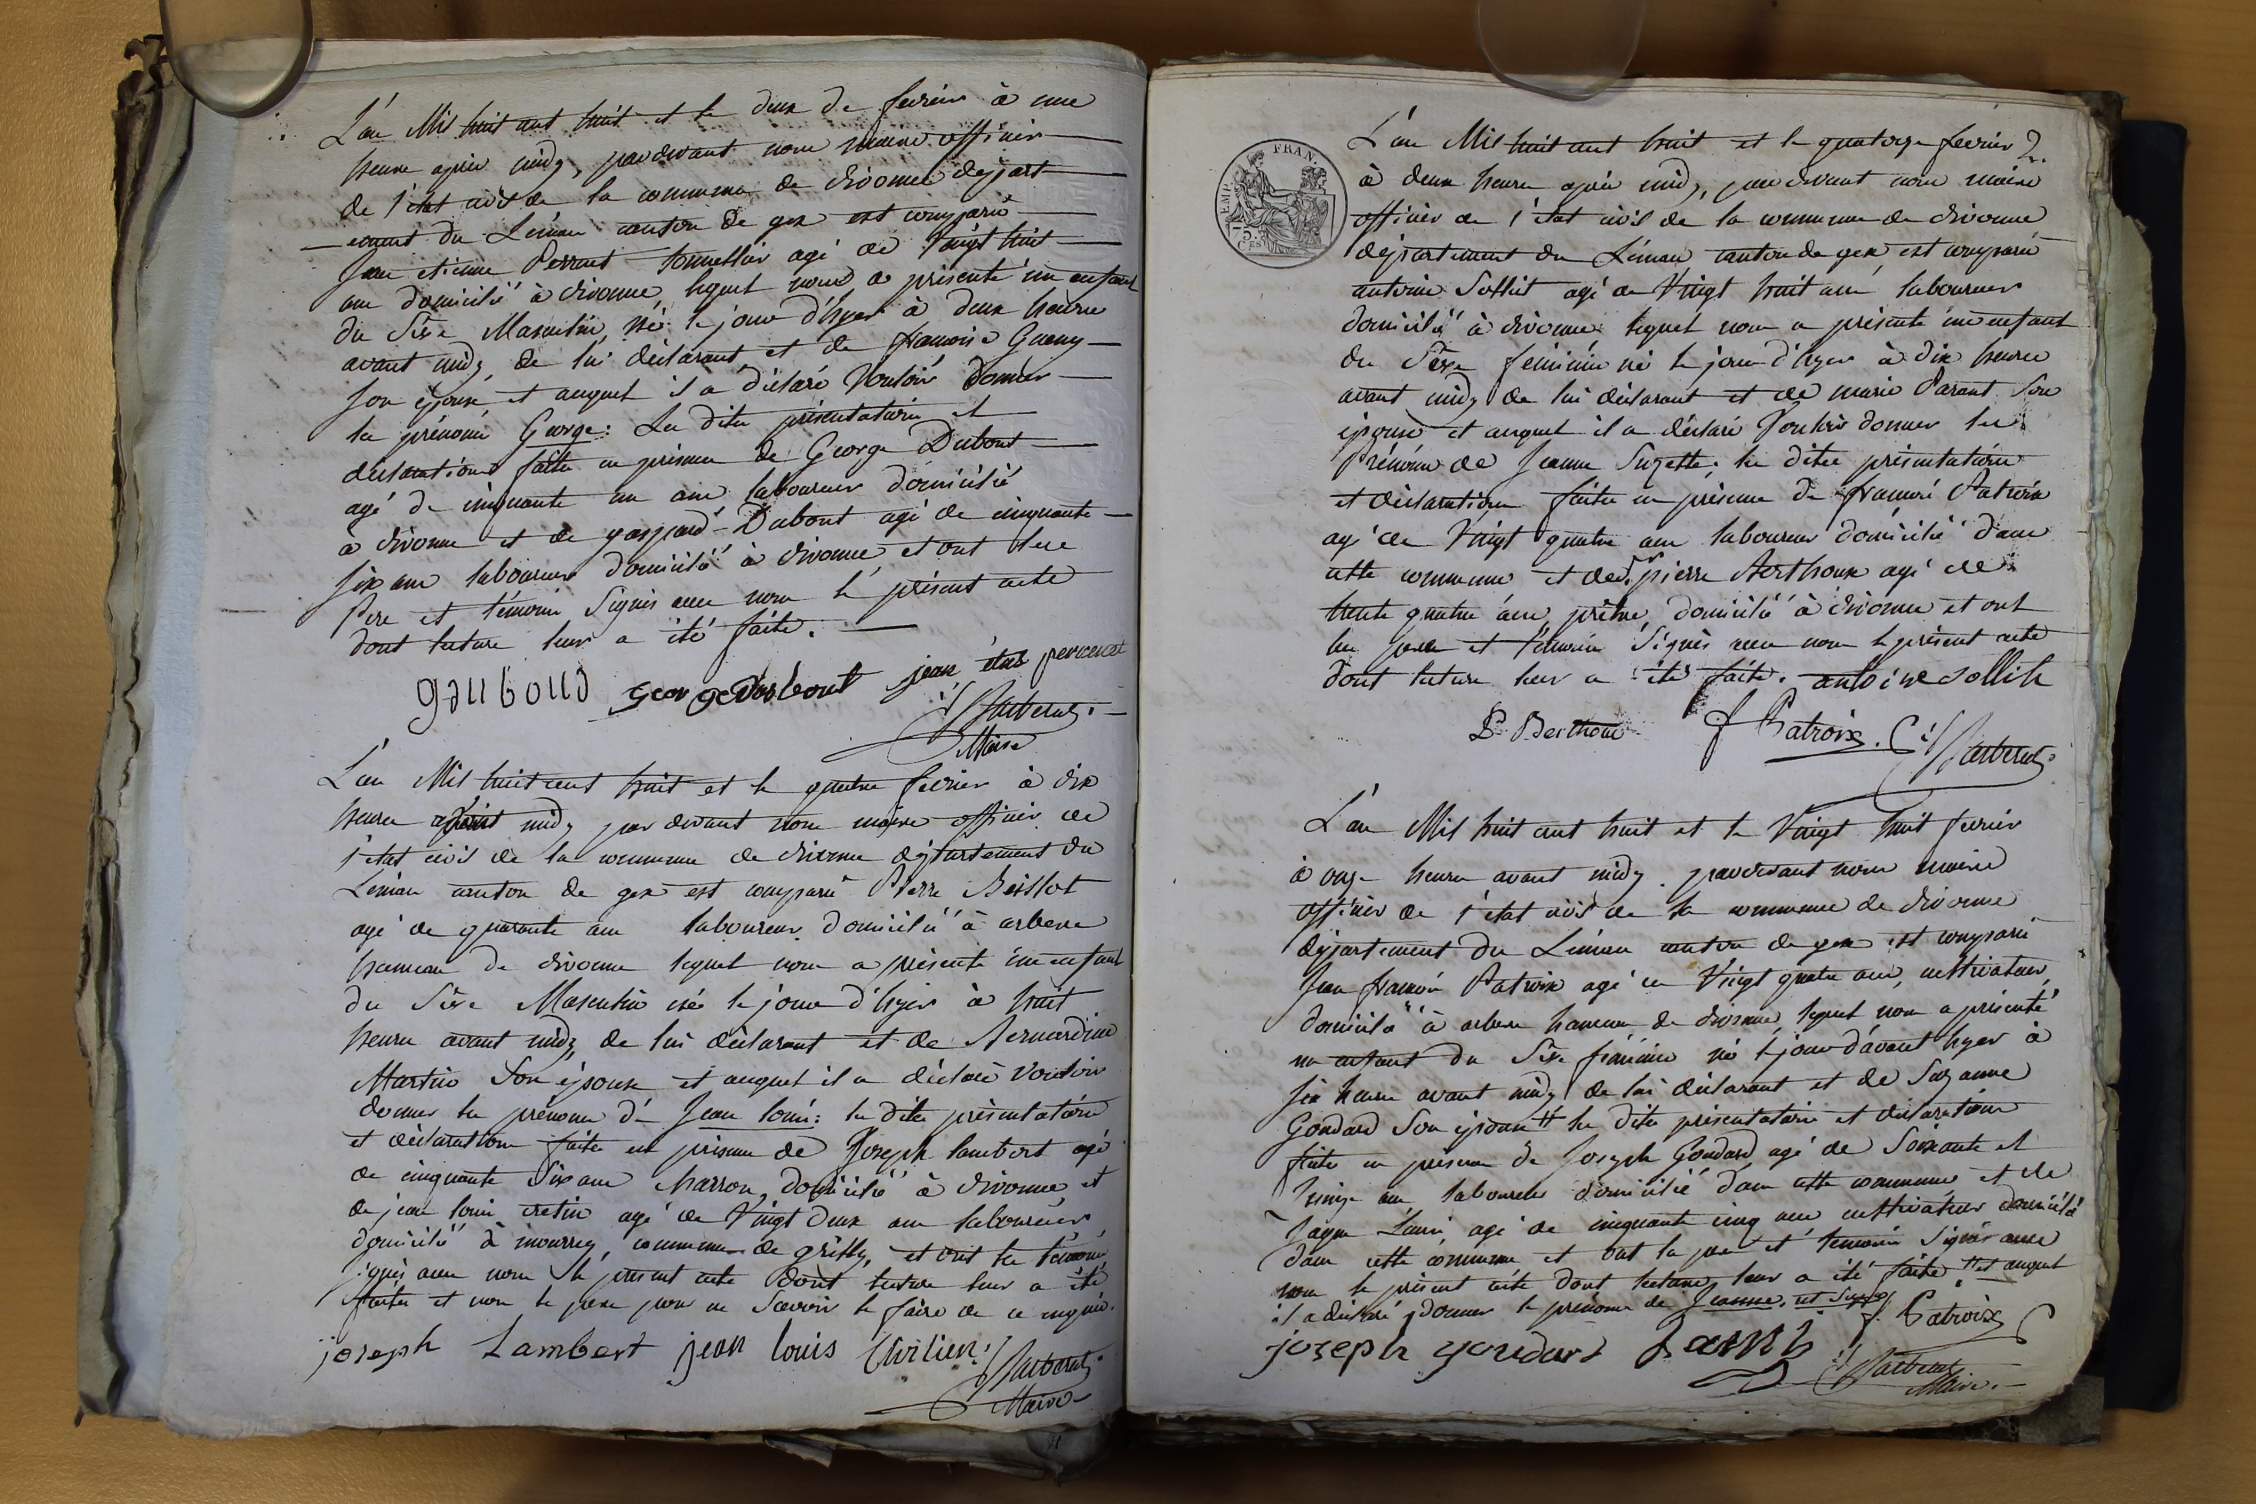 L'an Mil huit cent huit et le deux de fevrier à une
heure après midy, pardevant nous maire officier
de l'état civil de la commune de divonne départ
ement du Léman canton de gex est comparu
Jean etienne Perrent tonnellier agé de vingt huit
ans domicilié à divonne, lequel nous a présenté un enfant
du Sèxe Masculin né le jour d'hyer à deux heures
avant midy de lui déclarant et de francoise
son épouse et auquel il a déclaré vouloir donner
les prénoms George: Les dites présentation et
déclaration faites en présence de George Dubout
agé de cinquante un ans laboureur domicilié
à divonne et de gaspard Dubout agé de cinquante
six ans laboureur domicilié à divonne, et ont les
Pere et témoins signés avec nous le présent acte
dont lecture leur a été faite.
george dubout jean
Maire
L'an Mil huit cent huit et le quatre fevrier à dix
heures avant midy par devant nous maire officier de
l'état civil de la commune de divonne département du
Léman canton de gex est comparu Pierre Beillot
agé de quarante ans laboureur domicilié à arbere
hameau de divonne lequel nous a présenté un enfant
du Sèxe Masculin né le jour d'hyer à huit
heures avant midy de lui déclarant et de Bernardine
Martin son épouse et auquel il a déclaré vouloir
donner les prénoms de Jean louis: les dites présentation
et déclaration faites en présence de Joseph lambert agé
de cinquante six ans charron, domicilié à divonne, et
de jean louis cretin agé de vingt deux ans laboureur
domicilié à mourrey, commune de grilly, et ont les témoins
signés avec nous le présent acte dont lecture leur a été
faites et non le pere pour ne savoir le faire de ce enquis.
joseph Lambert jean louis
Maire
TIMP. FRAN.
75. CES
L'an Mil huit cent huit et le quatorze fevrier
à deux heures après midy, par devant nous maire
officier de l'état civil de la commune de divonne
département du Léman canton de gex est comparu
antoine Sollit agé de vingt huit ans, laboureur
domicilié à divonne, lequel nous a présenté un enfant
du Sèxe féminin né le jour d'hyer à dix heures
avant midy de lui déclarant et de marie Parant son
épouse et auquel il a déclaré vouloir donner les
Prénoms de Jeanne Suzette; les dites présentation
et déclaration faites en présence de francois Patroix
agé de vingt quatre ans laboureur domicilié dans
cette commune et de pierre Berthoux agé de
trente quatre ans, prêtre, domicilié à divonne et ont
les pere et témoins signés avec nous le présent acte
dont lecture leur a été faite. antoine sollit
P. Berthoux f Patroix.
L'an Mil huit cent huit et le vingt huit fevrier
à onze heures avant midy. pardevant nous maire
officier de l'état civil de la commune de divonne
département du Léman canton de gex est comparu
Jean francois Patroix agé de vingt quatre ans, cultivateur,
domicilié à arbere hameau de divonne, lequel nous a présenté
un enfant du Sèxe féminin né le jour d'avant hyer à
six heures avant midy de lui déclarant et de Suzanne
Gondard son épouse # les dites présentation et déclaration
faites en présence de Joseph Gondard agé de soixante et
quinze ans laboureur domicilié dans cette commune et de
agé de cinquante cinq ans cultivateur domicilié
dans cette commune et ont les pere et temoins signés avec
nous le présent acte dont lecture leur a été faite. # et auquel
il a déclaré donner le prénoms de Jeanne,
f. Patroix
joseph gondard
Maire.